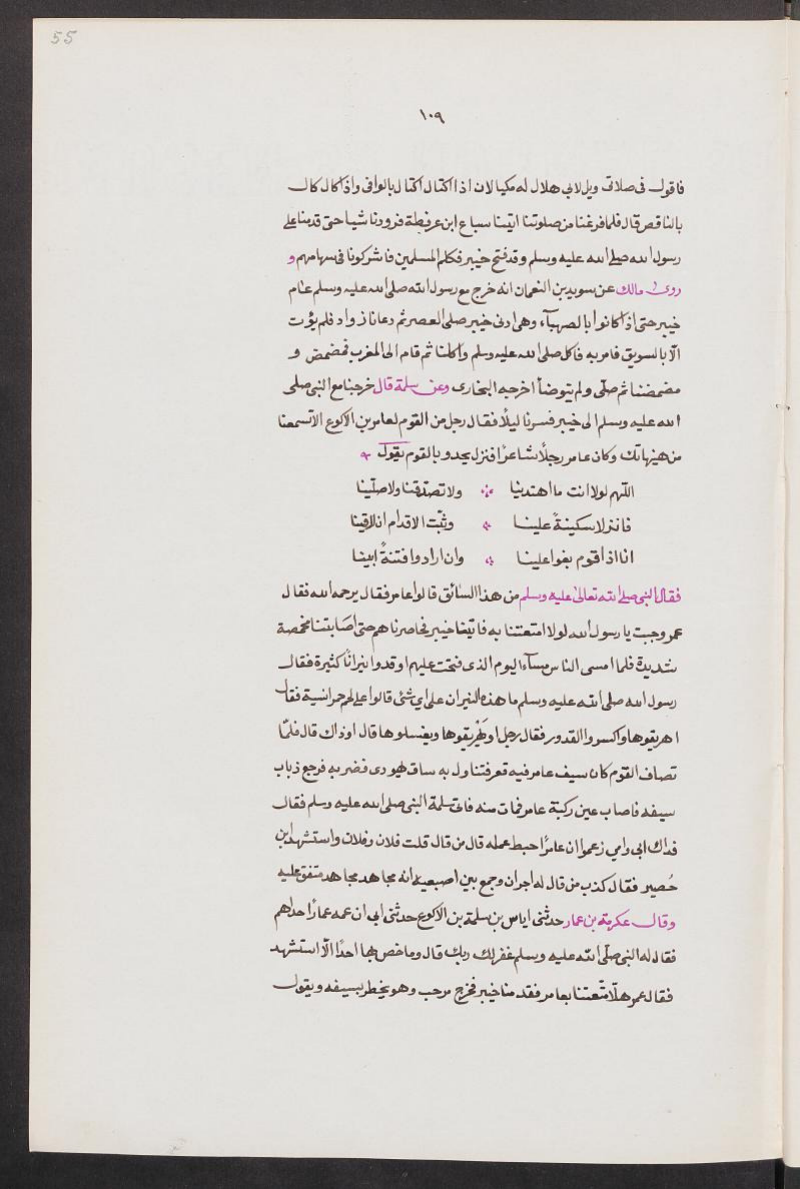 55
١٠٩
فاقول فى صلاتى ويل لابى هلال له مكيالان اذا اكتال اكتال بالوافى واذا كال كال
بالناقص قال فلما فرغنا من صلوتنا اتينا سباع ابن عرفطة فزودنا شيا حتى قدمنا على
رسول الله صلى الله عليه وسلم وقد فتح خيبر فكلم المسلمين فاشركونا فى سهامهم و
روى مالك عن سويد بن النعمان انه خرج مع رسول الله صلى الله عليه وسلم عام
خيبر حتى اذا كانوا بالصهباء وهى ادنى خيبر صلى العصر ثم دعا نازواد فلم يؤت
الّا بالسويق فامر به فاكل صلى الله عليه وسلم واكلنا ثم قام الى المغرب فمضمض و
مضمضنا ثم صلّى ولم يتوضأ اخرجه البخارى وعن سلمة قال خرجنا مع النبى صلى
الله عليه وسلم الى خيبر فسرنا ليلًا فقال رجل من القوم لعامر بن الاكوع الا تسمعنا
من هنيهاتك وكان عامر رجلًا شاعرًا فنزل يحدو بالقوم يقول
اللّهم لولا انت ما اهتدينا ولا تصدّقنا ولا صلّينا
فانزلا سكينةً علينا وثبّت الاقدام ان لاقينا
انا اذا قوم بغوا علينا وان ارادوا فتنةً ابينا
فقال النبى صلى الله تعالى عليه وسلم من هذا السائق قالوا عامر فقال يرحمه الله فقال
عمر وجبت يا رسول الله لولا امتعتنا به فاتينا خيبر فحاصرناهم حتى اصابتنا مخمصة
شديدة فلما امسى الناس مسآء اليوم الذى فتحت عليهم اوقدوا نيرانًا كثيرة فقال
رسول الله صلى الله عليه وسلم ما هذه النيران على اى شئ قالوا على لحم حمر انسية فقال
اهريقوها واكسروا القدور فقال رجل او نهريقوها ويغسلوها قال او ذاك قال فلمّا
تصاف القوم كان سيف عامر فيه قصر فتناول به ساق يهودى فضربه فرجع ذباب
سيفه فاصاب عين ركبة عامر فمات منه فاتى سلمة النبى صلى الله عليه وسلم فقال
فداك ابى وامى زعموا ان عامرًا حبط عمله قال من قال قلت فلان وفلان واستشهد ابن
حُصير فقال كذب من قال له اجران وجمع بين اصبعيه انه مجاهد مجاهد متفق عليه
وقال عكرمة بن عمار حدثنى اياس بن سلمة بن الاكوع حدثنى ابى ان عمه عمارًا حداهم
فقال له النبى صلّى الله عليه وسلم غفر لك ربك قال وما خص بها احدًا الّا استشهد
فقال عمر هلّا متّعتنا بعامر فقدمنا خيبر فخرج مرحب وهو يخطر بسيفه ويقول